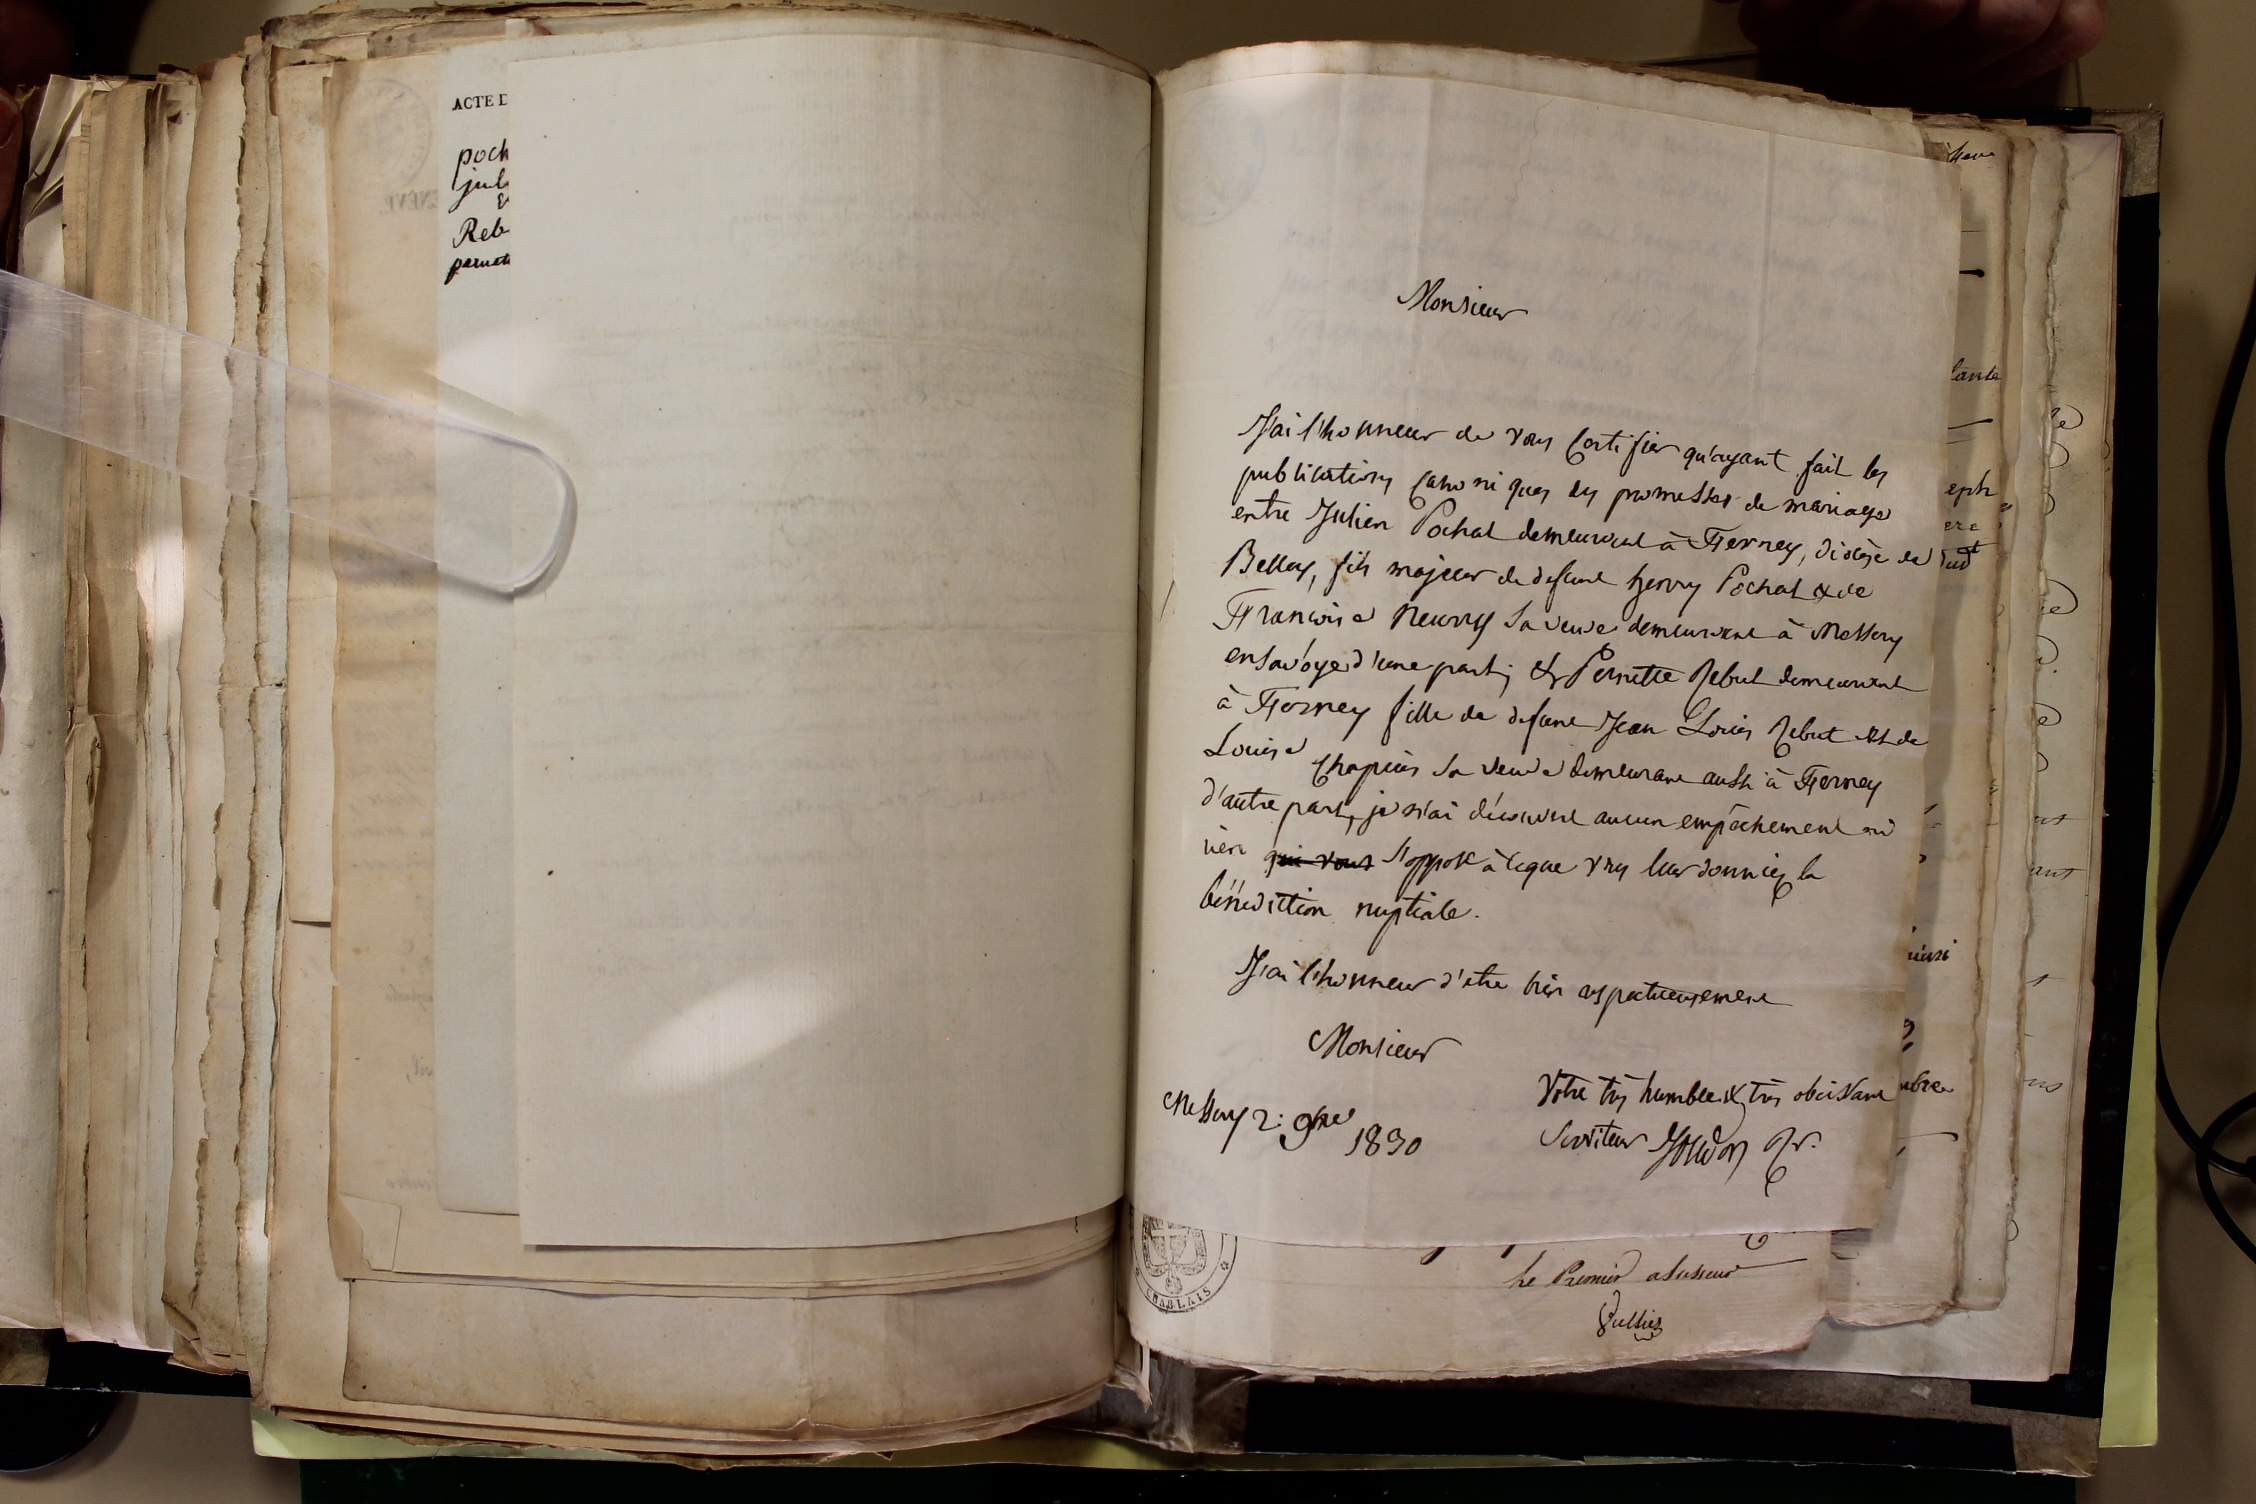 ACTE D
poch
jul
&
Reb
pernet
Monsieur
J'ai l'honneur de vous Certifier qu'ayant fait les
publications Canoniques des promesses de mariage
entre Julien Pochat demeurant à Ferney, diocèse de
Belley, fils majeur de defunt henry Pochat & de
Francoise Neurry sa veuve demeurant à Messery
en savoye d'une part; & Pernette Rebut demeurant
à Ferney fille de defunt Jean Louis Rebut et de
Louise Chapuis sa veuve demeurant aussi à Ferney
d'autre part, je n'ai découvert aucun empêchement
rien qui vous s'oppose à ceque vous leur donniez la
bénédiction nuptiale.
J'ai l'honneur d'etre bien respectueusement
Monsieur
Votre très humble & très obeissant
Serviteur
Messery 2: 9bre 1830
CHABLAIS
le Premier assesseur